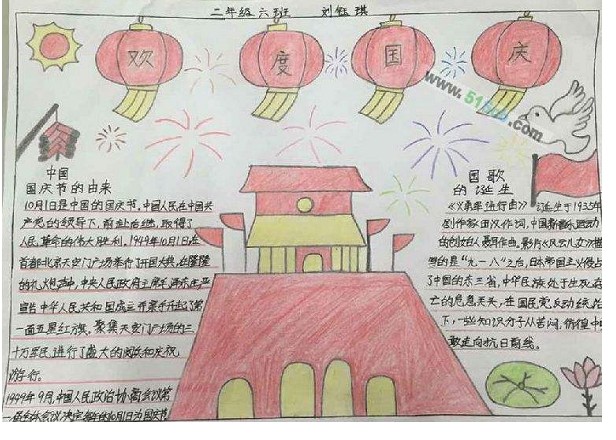 二年级六班 刘钰琪
欢度国庆
中国
国庆节的由来
10月1日是中国的国庆节,中国人民在中国共
产党的领导下,前赴后继,取得了
人民革命的伟大胜利,1949年10月1日在
首都北京天安门广场举行了开国大典,在隆隆
的礼炮声中,中央人民政府主席毛泽东庄严
宣告中华人民共和国成立并亲手升起了第
一面五星红旗,聚集天安门广场的三
十万军民,进行了盛大的阅兵和庆祝
游行。
1949年9月,中国人民政治协商会议第
国歌
的诞生
《义勇军进行曲》诞生于1935年
创作,由田汉作词,中国新音乐运动
的创始人聂耳作曲,影片《风云儿女》描
的是"九一八"之后,日本帝国主义侵占
了中国的东三省,中华民族处于生死存
亡的危急关头,在国民党反动统
下,一些知识分子从苦闷、彷徨中
敢走向抗日前线。